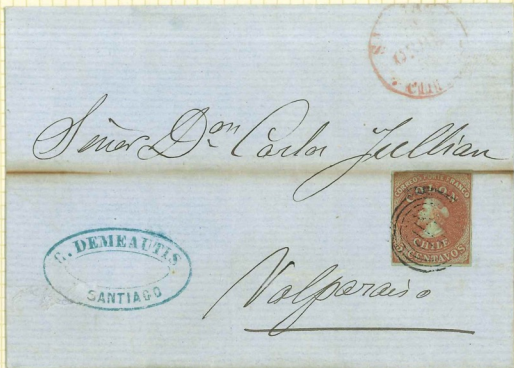 CHILE
Señor Dⁿ Carlos Jullian
COLON
CHILE
CENTAVOS
C. DEMEAUTIS
SANTIAGO
Valparaiso